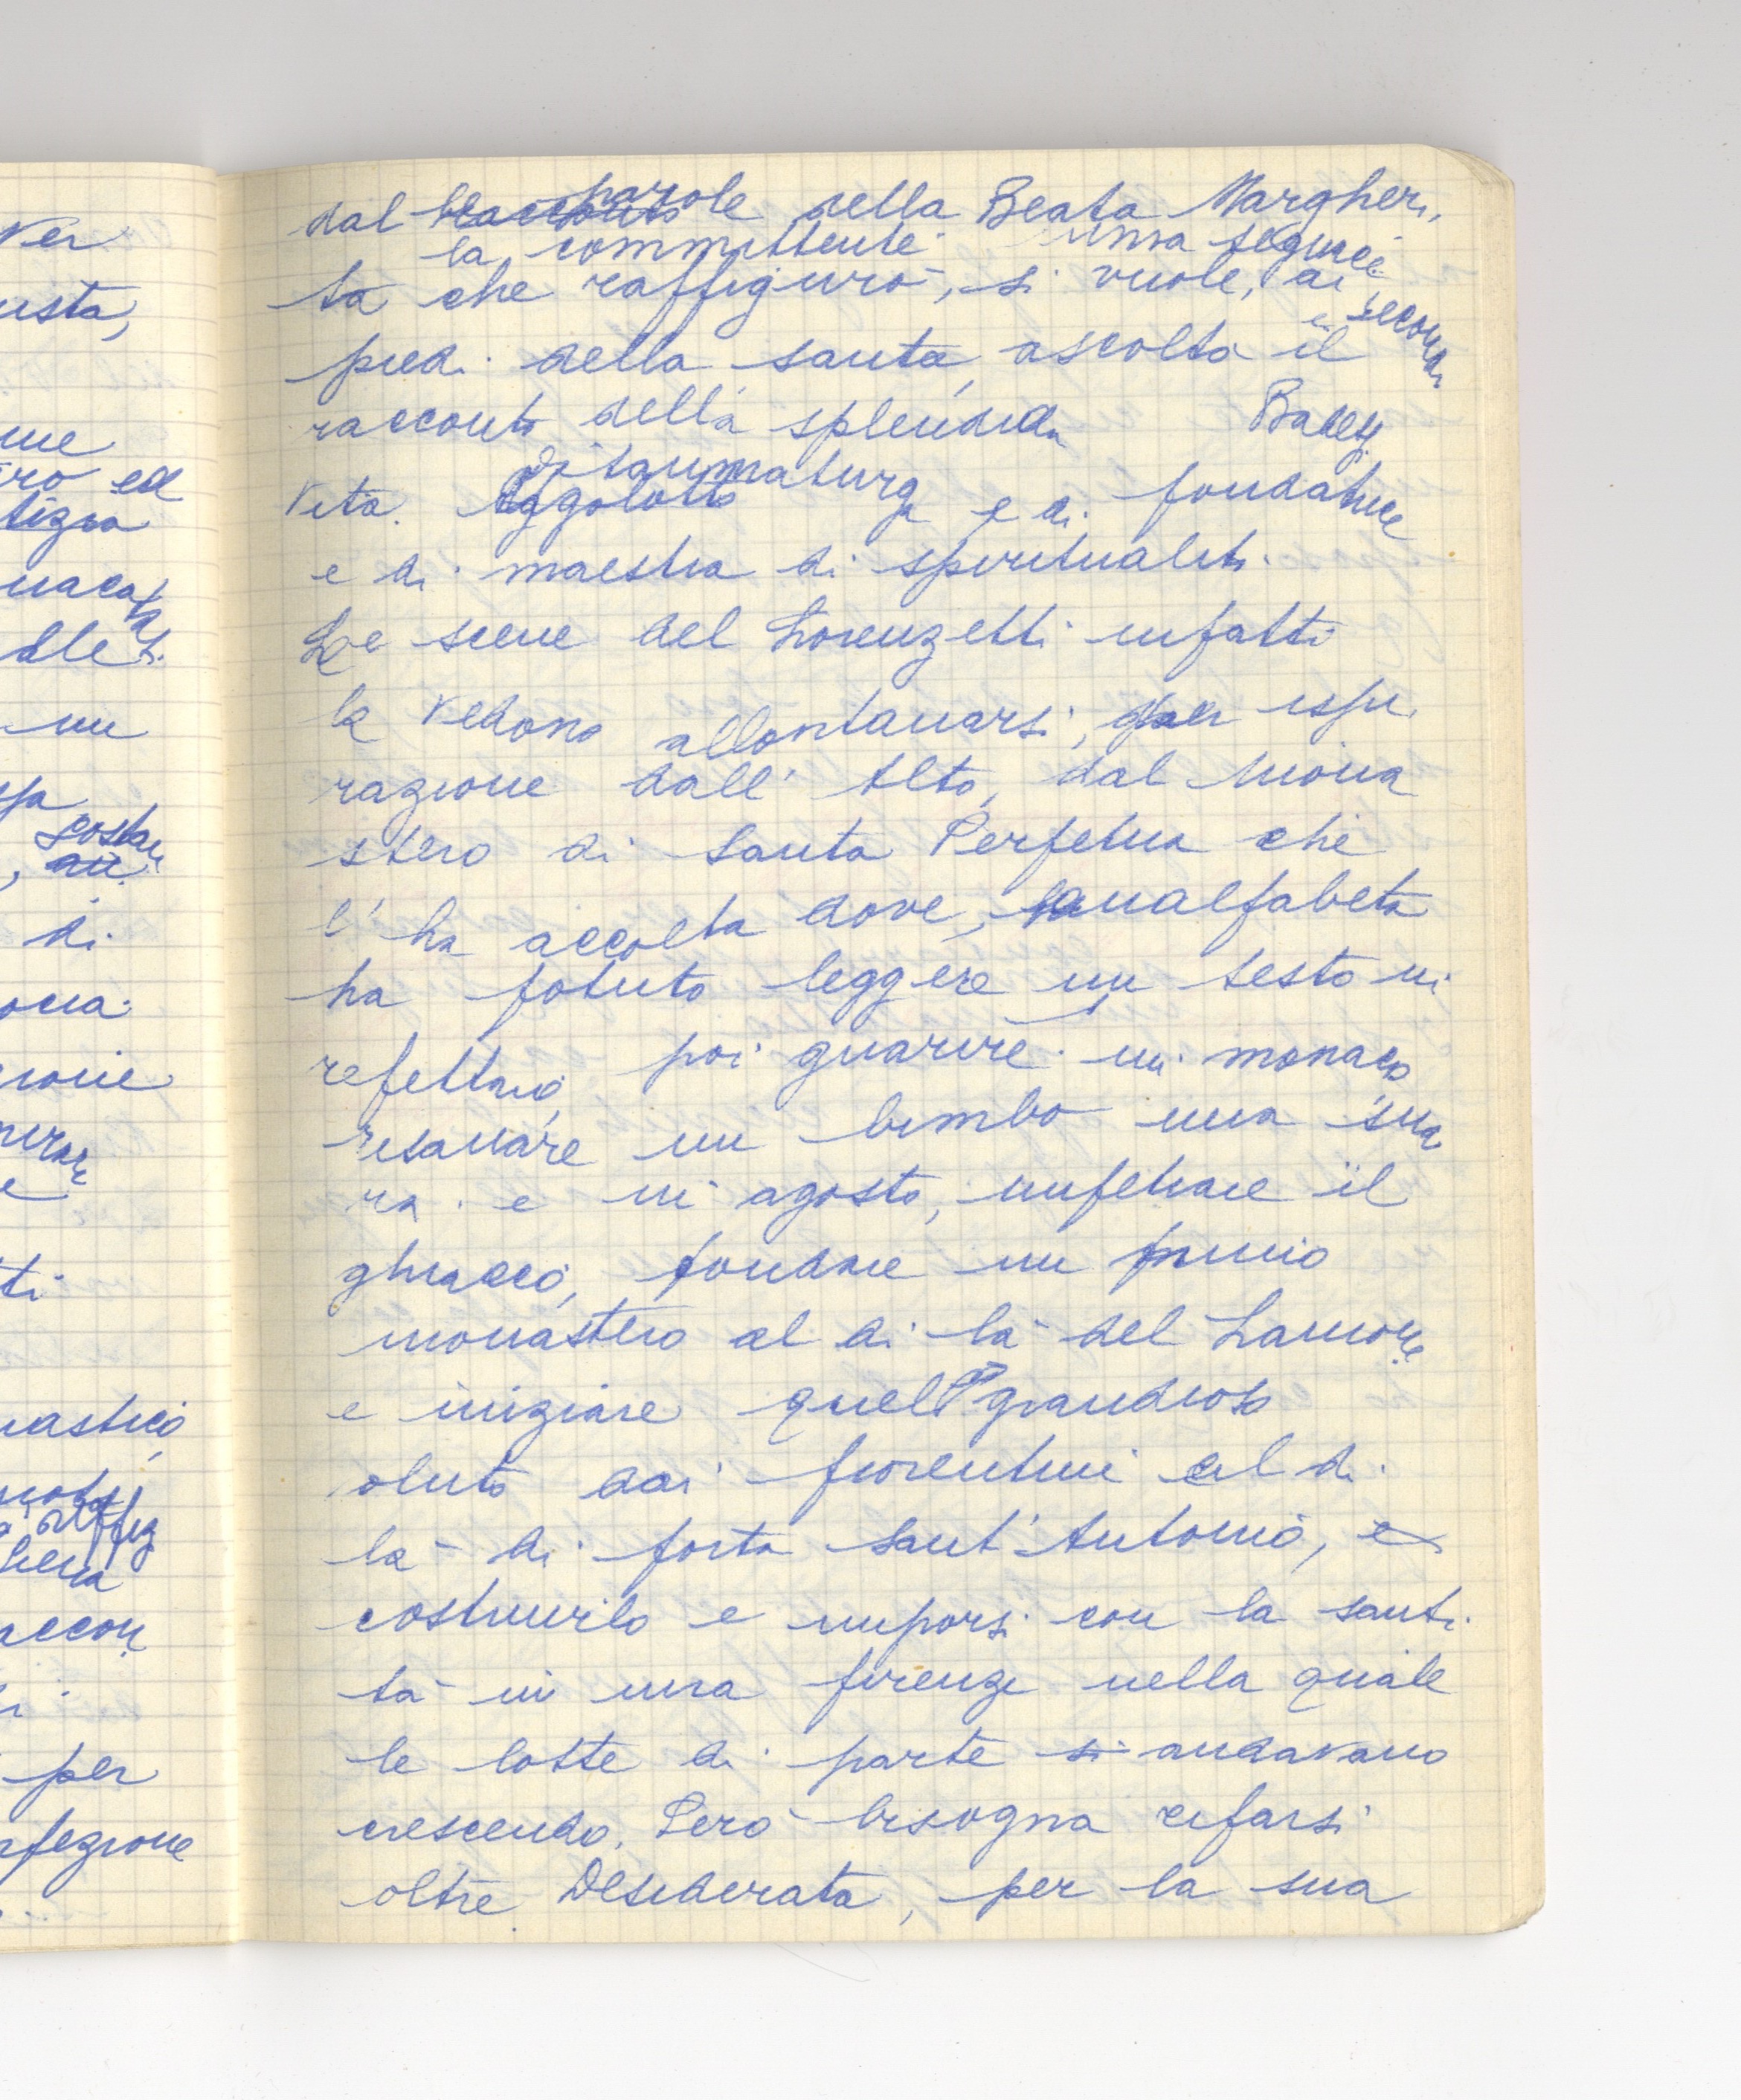 ver
usta,
me
ro ed
tizia
nacata
dle
un
sostan
di
ona
rone
e
ti
nastico
accon
per
rfezione
dal parole della Beata Margheri,
la committente una seguace
ta che raffigurò, si vuole, ai
piedi della santa, ascolta il
racconto della splendida
vita di taumaturga e di fondatrice
e di maestra di spiritualità.
Le scene del Lorenzetti infatti
la vedono allontanarsi, per ispi
razione dall'Alto, dal mona
stero di Santa Perpetua che
l'ha accolta dove, analfabeta
ha potuto leggere un testo in
refettorio, poi guarire un monaco
risanare un bimbo una suo
ra e in agosto, impetrare il
ghiaccio, fondare un primo
monastero al di là del Lamone
e iniziare quel grandioso
oluto dai fiorentini al di
là di porta Sant'Antonio, e
costruirlo e imporsi con la santi
tà in una firenze nella quale
le lotte di parte si andavano
crescendo. Però bisogna rifarsi
oltre Desiderata, per la sua